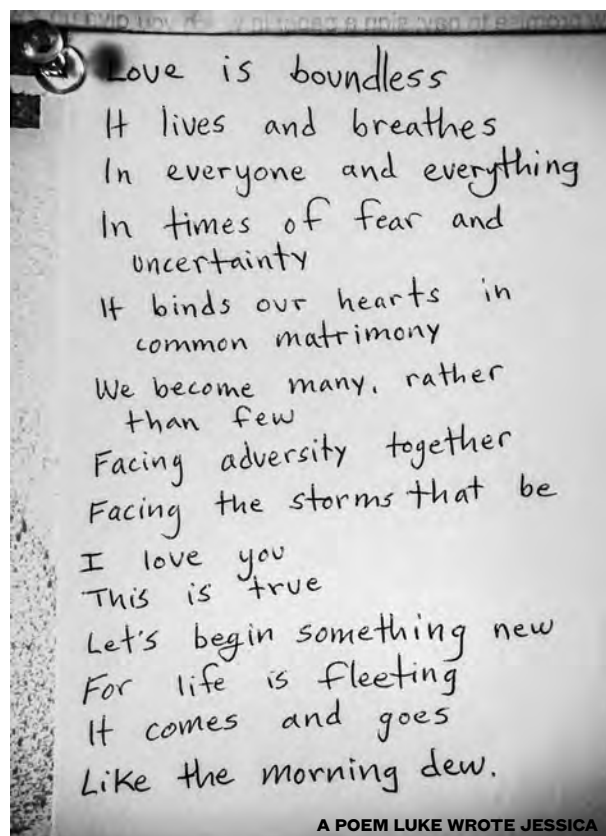 Love is boundless
It lives and breathes
In everyone and everything
In times of fear and
uncertainty
It binds our hearts in
common matrimony
We become many, rather
than few
Facing adversity together
Facing the storms that be
I love you
This is true
Let's begin something new
For life is fleeting
It comes and goes
Like the morning dew.
A POEM LUKE WROTE JESSICA